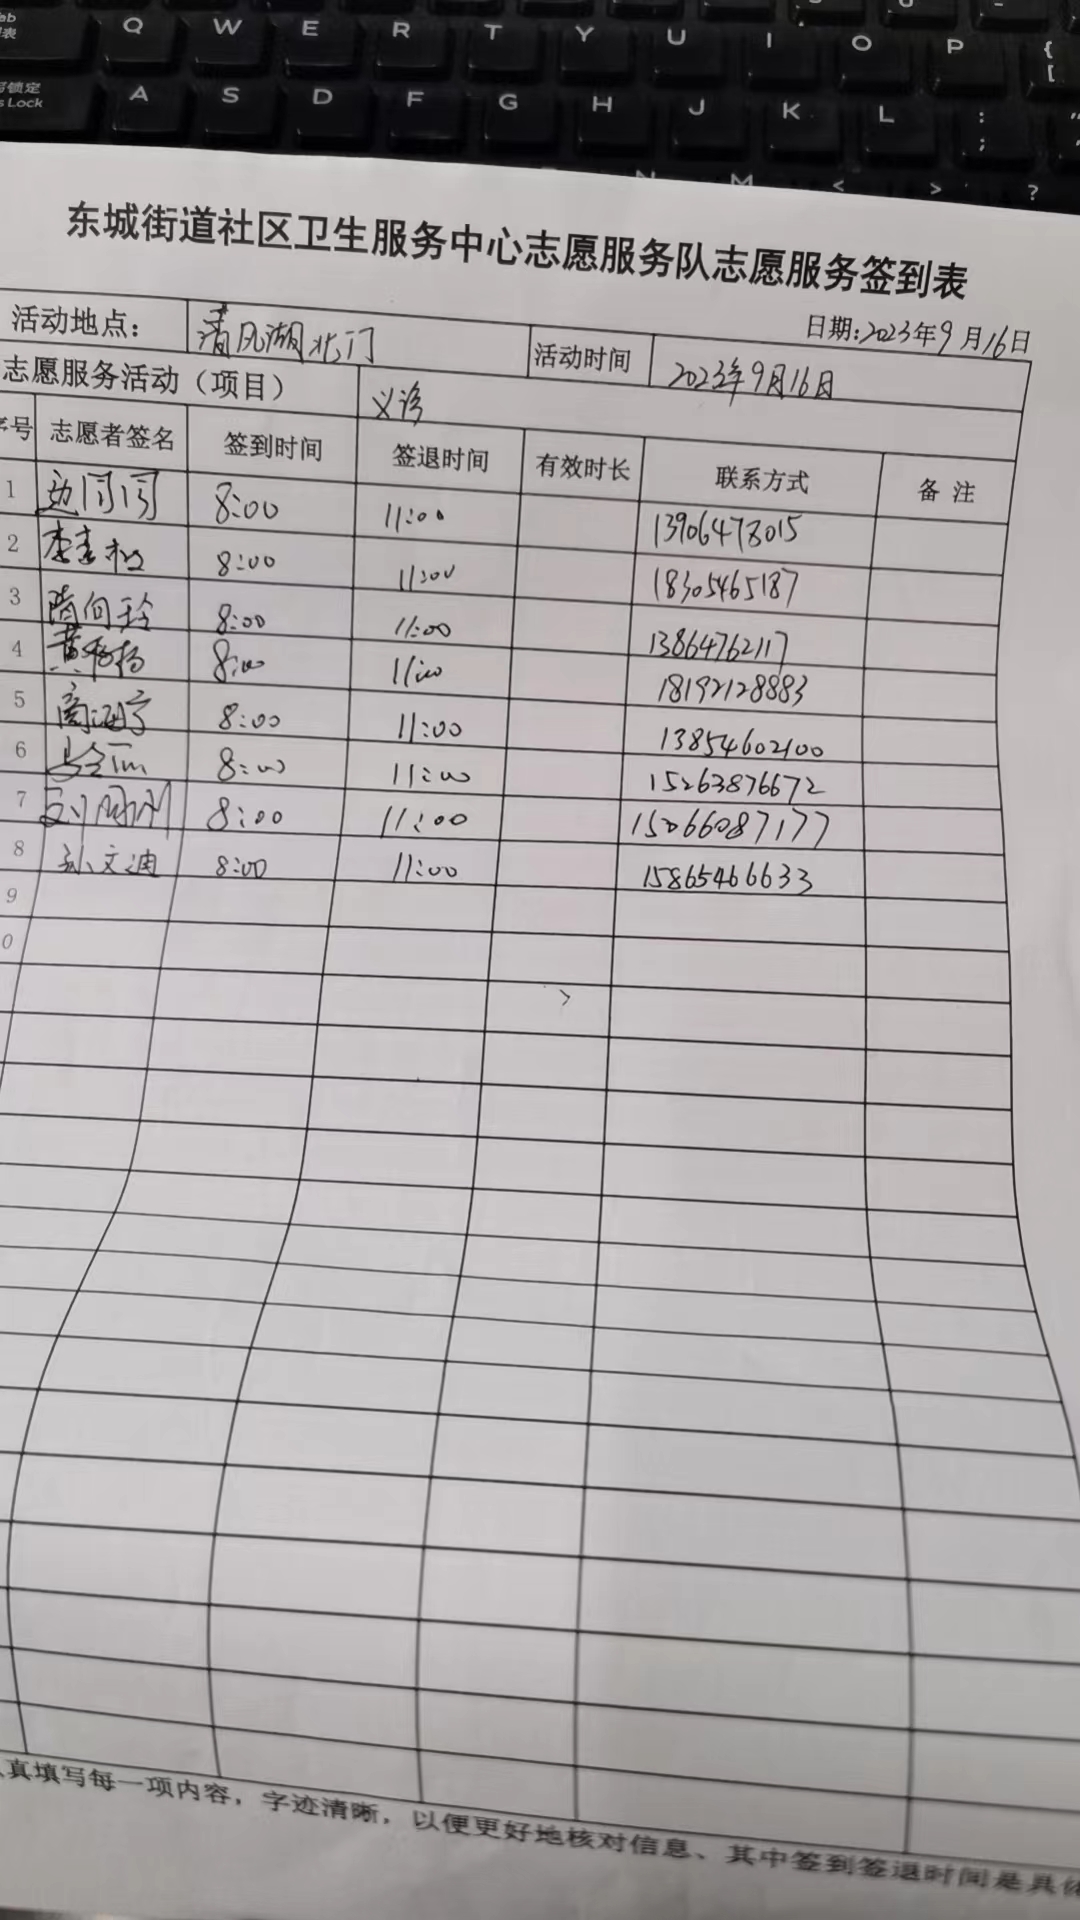 Q W E R T Y U I O P { [
A S D F G H J K L : ;
N M < > ?
东城街道社区卫生服务中心志愿服务队志愿服务签到表
日期:2023年9月16日
活动地点: 清风湖北门 活动时间 2023年9月16日
志愿服务活动（项目） 义诊
序号 志愿者签名 签到时间 签退时间 有效时长 联系方式 备注
1 边闩闩 8:00 11:00 13906478015
2 8:00 11:00 18305465187
3 隋向玲 8:00 11:00 13864762117
4 黄杨 8:00 11:00 18192128883
5 8:00 11:00 13854602100
6 8:00 11:00 15263876672
7 刘 8:00 11:00 15066087177
8 孙文迪 8:00 11:00 15865466633
9
0
真填写每一项内容，字迹清晰，以便更好地核对信息、其中签到签退时间是具体